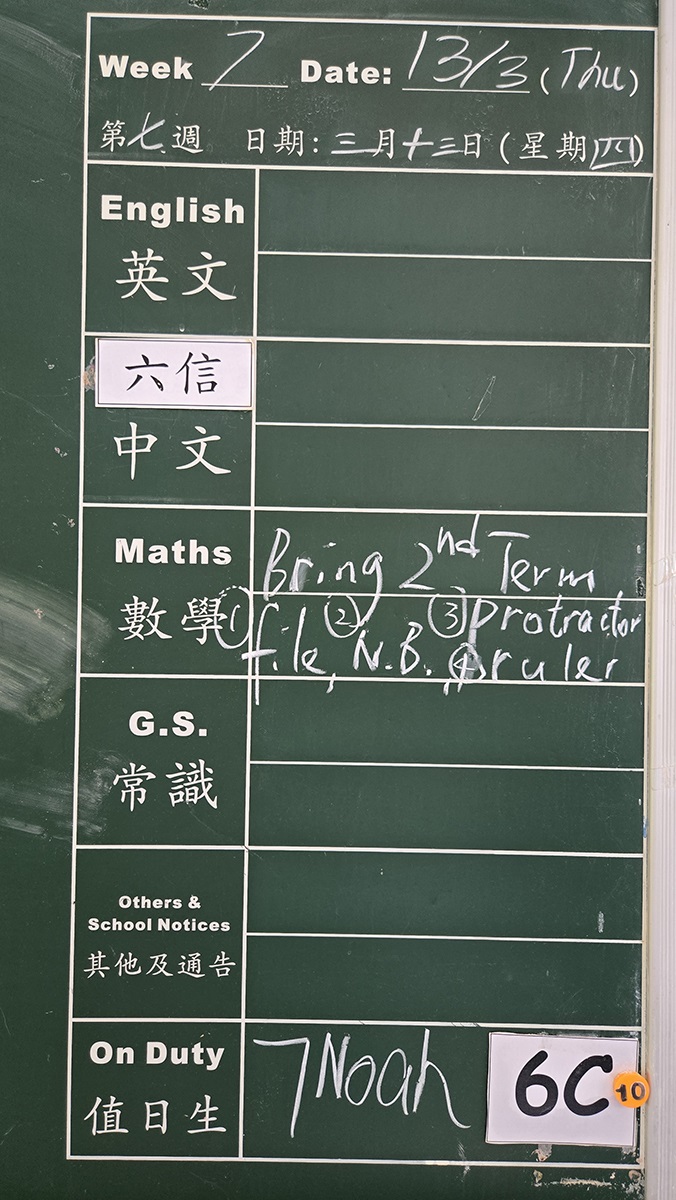 Week 7 Date: 13/3 (Thu)
第七週 日期: 三月十三日 (星期四)
English
英文
六信
中文
Maths
數學
Bring 2nd Term
① ② ③ protractor
file, N.B. ④ ruler
G.S.
常識
Others &
School Notices
其他及通告
On Duty
值日生
7 Noah
6C
10